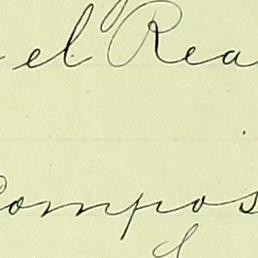 el Rea
Compos